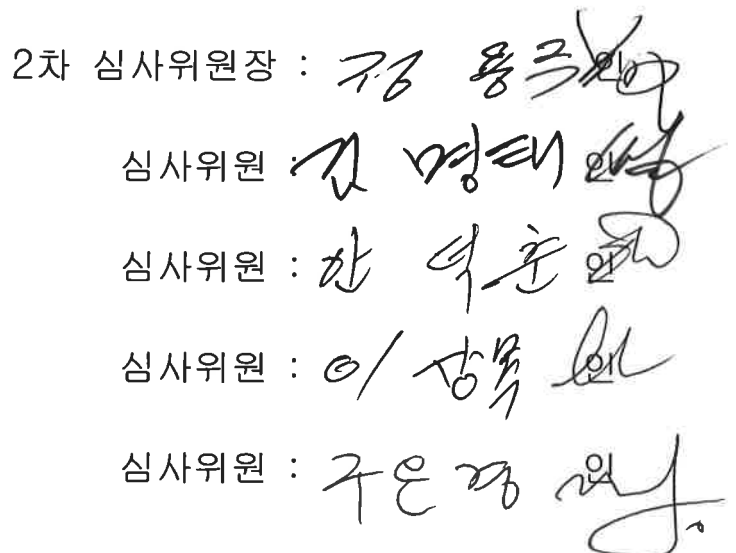 2차 심사위원장 : 정 용국 인
심사위원 : 김 명태 인
심사위원 : 한 덕훈 인
심사위원 : 이 상목 인
심사위원 : 구은경 인